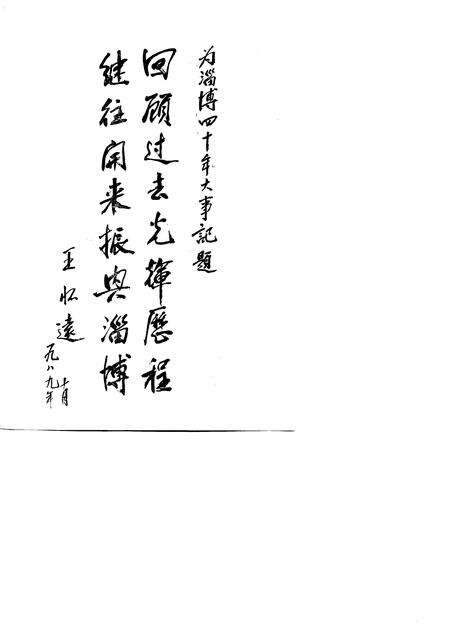 为淄博四十年大事記題
回顾过去光輝歷程
继往开来振兴淄博
王怀遠
一九八九年
十月